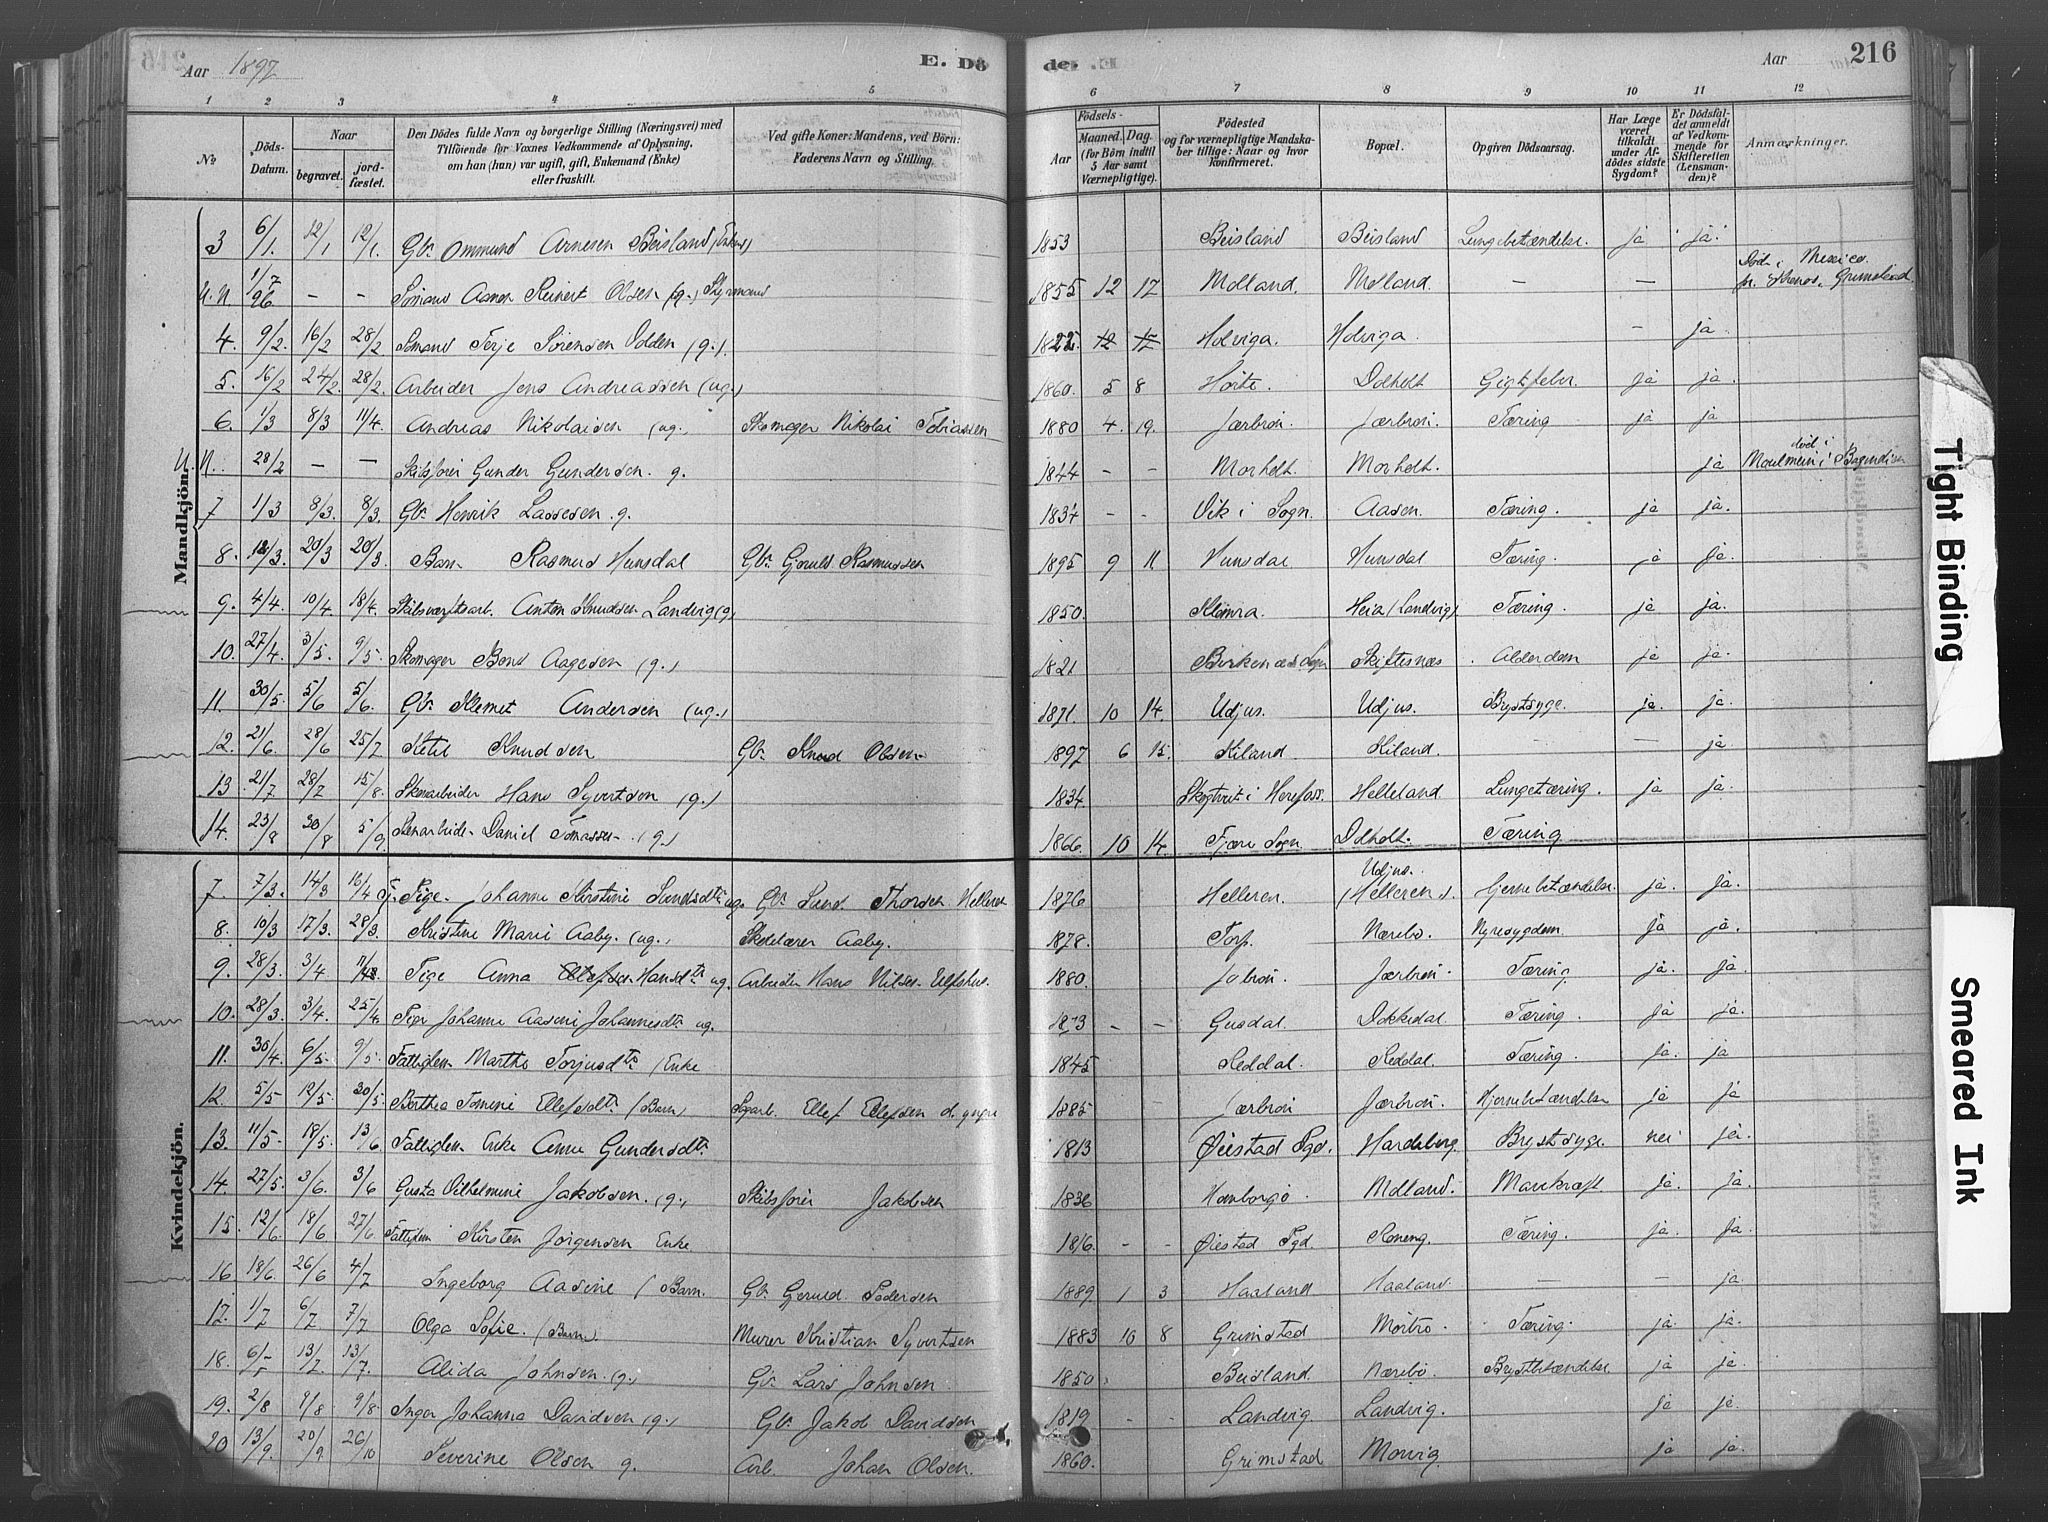 Aar 1897 E. Dö
de. Aar 216
1 2 3 4 5 6 7 8 9 10 11 12
No Döds-Datum. Naar begravet. jord-fæstet. Den Dödes fulde Navn og borgerlige Stilling (Næringsvei) med Tilföiende for Voxnes Vedkommende af Oplysning, om han (hun) var ugift, gift, Enkemand (Enke) eller fraskilt. Ved gifte Koner: Mandens, ved Börn: Faderens Navn og Stilling. Födsels- Aar Maaned. Dag. (for Börn indtil 5 Aar samt Værnepligtige). Födested og for værnepligtige Mandskaber tillige: Naar og hvor konfirmeret. Bopæl. Opgiven Dödsaarsag. Har Læge været tilkaldt under Afdödes sidste Sygdom? Er Dödsfaldet anmeldt af Vedkommende for Skifteretten (Lensmanden)? Anmærkninger.
Mandkjön.
3 6/1. 12/1 12/1. Gbr Ommund Arnesen Beisland (Enkm) 1853 Beisland Beisland Lungebetændelse. ja ja.
U.N. 1/7 96 – – Sömand Asmen Reinert Olsen (g.) Styrmand 1855 12 17 Molland. Molland. – – Död i Mexico.
4. 9/2. 16/2 28/2 Sömand Terje Sörensen Odden (g.). 1822. 12 17 Holviga. Holviga. – ja.
5. 16/2 24/2. 28/2. Arbeider Jens Andreassen (ug.) 1860. 5 8 Hörte. Dolholt Gigtfeber. ja ja.
6. 1/3 8/3 11/4. Andreas Nikolaisen (ug.) Skomager Nikolai Tobiassen 1880 4. 19. Jærbröi. Jærbröi. Tæring ja ja
U.N. 28/2 – – Skibsförer Gunder Gundersen. g. 1844 – – Morholt. Morholt. ja död i Moulmein i Bagindien
7 1/3 8/3. 8/3. Gbr Henrik Lassesen. g. 1834 – – Vik i Sogn. Aasen. Tæring. ja ja.
8. 12/3. 20/3 20/3. Barn Rasmus Hunsdal Gbr. Gjeruld Rasmussen 1895 9 11 Hunsdal Hunsdal Tæring. ja ja.
9. 4/4. 10/4. 18/4. Skibsværftsarb. Anton Knudsen Landvig (g) 1850. Klemra. Heia (Landvig). Tæring. ja ja.
10. 27/4. 3/5. 9/5. Skomager Bens Aagesen (g.) 1821 Birkenæs Sogn Skiftesnæs. Alderdom ja ja.
11. 30/5. 5/6 5/6. Gbr. Klemet Andersen (ug.) 1871. 10 14. Udjus. Udjus. Brystsyge. ja. ja.
12. 21/6. 28/6 25/7 Ketil Knudsen Gbr. Knud Olsen 1897 6 15. Kiland. Kiland. – – ja
13. 21/7 28/7 15/8. Stenarbeider Hans Syvertsen (g.) 1834. Skogtveit i Herefoss. Helleland Lungetæring. ja ja.
14. 23/8 30/8 5/9 Stenarbeider Daniel Tomassen (g.) 1866. 10 14. Fjære Sogn Dolholt. Tæring
Kvindekjön.
7. 7/3. 14/3 16/4 Pige. Johanne Kirstine Lundsdtr ug. Gbr Lund. Thorsen Helleren 1876 Helleren. Udjus. (Helleren). Hjernebetændelse. ja. ja.
8. 10/3 17/3. 28/3. Kristine Marie Aaby. (ug.) Skolelærer Aaby. 1878. Torp. Nærebö. Nyresygdom ja ja.
9. 28/3. 3/4 11/4 Pige Anna Hansdtr ug. Arbeider Hans Nilsen Ulfshus. 1880. Jobröi. Jærbröi. Tæring ja. ja.
10. 28/3. 3/4. 25/4 Pige Johanne Aasine Johannesdtr ug. 1873 – – Gusdal. Dokkedal. Tæring. ja ja.
11. 30/4. 6/5. 9/5. Fattiglem Marthe Torjusdtr (Enke 1845 Reddal. Reddal. Tæring. ja. ja
12. 5/5. 12/5. 30/5 Berthea Tomine Ellefsdtr (Barn) Sagarb. Ellef Ellefsen d. yngre 1885 Jærbröi Jærbröi. Hjernebetændelse ja ja
13. 11/5. 18/5. 13/6 Fattiglem Enke Anne Gundersdtr 1813 Øiestad Sgd. Hardeberg. Brystsyge. nei ja.
14. 27/5. 3/6. 3/6 Gusta Vilhelmine Jakobsen. (g.) Skibsförer Jakobsen 1836 Homborgö. Molland. Mavekræft ja. ja.
15. 12/6. 18/6 27/6 Fattiglem Kirsten Jörgensen Enke 1816. – – Øiestad Sgd. Roneng. Tæring. ja. ja.
16. 18/6. 26/6 4/7 Ingeborg Aasine (Barn. Gbr. Gjeruld Pedersen 1889 1 3 Haaland Haaland – – ja
17. 1/7 6/7 7/7 Olga Sofie. (Barn) Murer Kristian Syvertsen 1883 10 8 Grimstad Mörbro. Tæring. ja. ja.
18. 13/7 13/7. Alida Johnsen. (g.) Gbr Lars Johnsen. 1850. Beisland. Nærebö. Brystbetændelse. ja ja.
19. 2/8 9/8 9/8. Inger Johanna Davidsen (g.) Gbr. Jakob Davidsen 1819 – – Landvig Landvig. ja ja.
20 13/9. 20/9. 26/10 Severine Olsen g. Arb. Johan Olsen. 1860. Grimstad Morvig ja ja.
Tight Binding
Smeared Ink